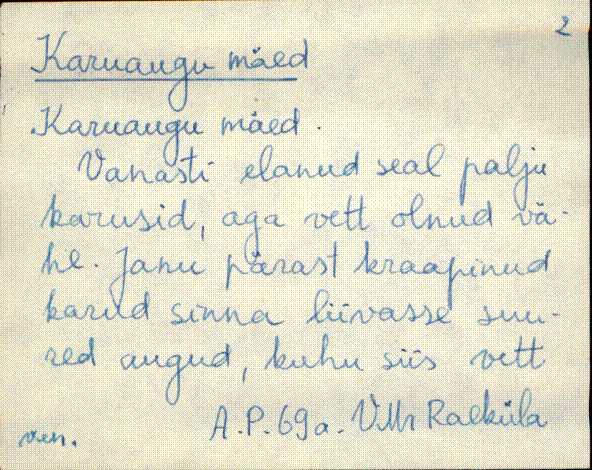 2
Karuaugu mäed
Karuaugu mäed.
Vanasti elanud seal palju
karusid, aga vett olnud vä-
he. Janu pärast kraapinud
karud sinna liivasse suu-
red augud, kuhu siis vett
A.P. 69 a. V.Mr Raeküla
ven.